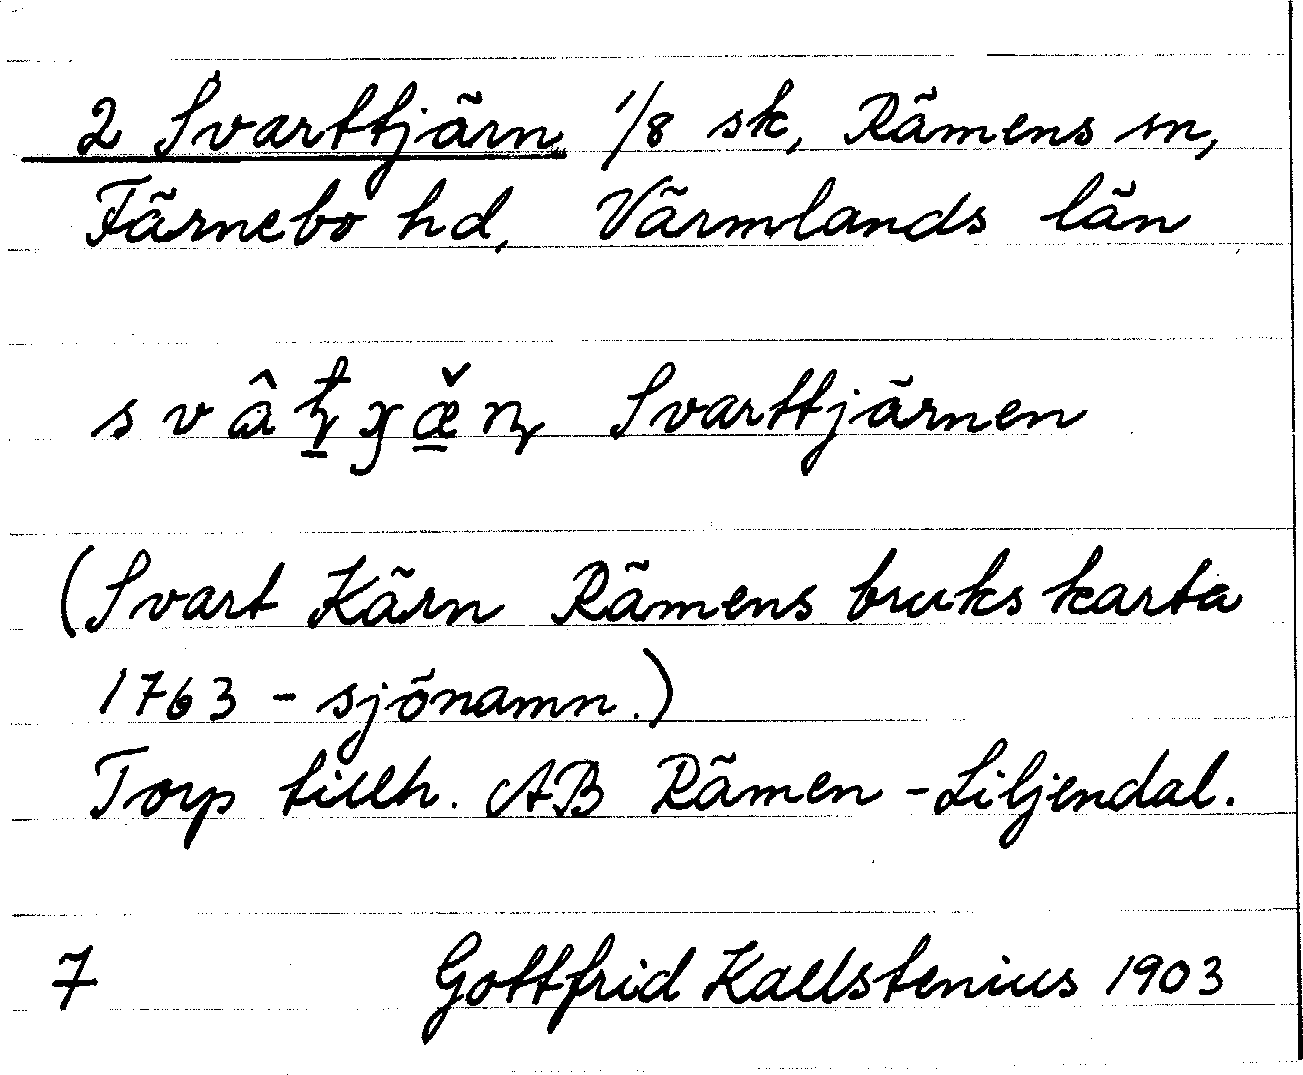 2 Svarttjärn 1/8 sk, Rämens sn,
Färnebo hd, Värmlands län
Svarttjärnen
(Svart Kärn Rämens brukskarta
1763 - sjönamn.)
Torp tillh. AB Rämen - Liljendal.
7 Gottfrid Kallstenius 1903